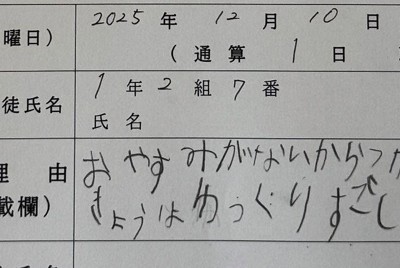 2025 年 12 月 10 日
曜日)
(通算 1 日
1 年 2 組 7 番
徒氏名
氏 名
おやすみがないからつか
理 由
きょうはゆっくりすごし
載欄)